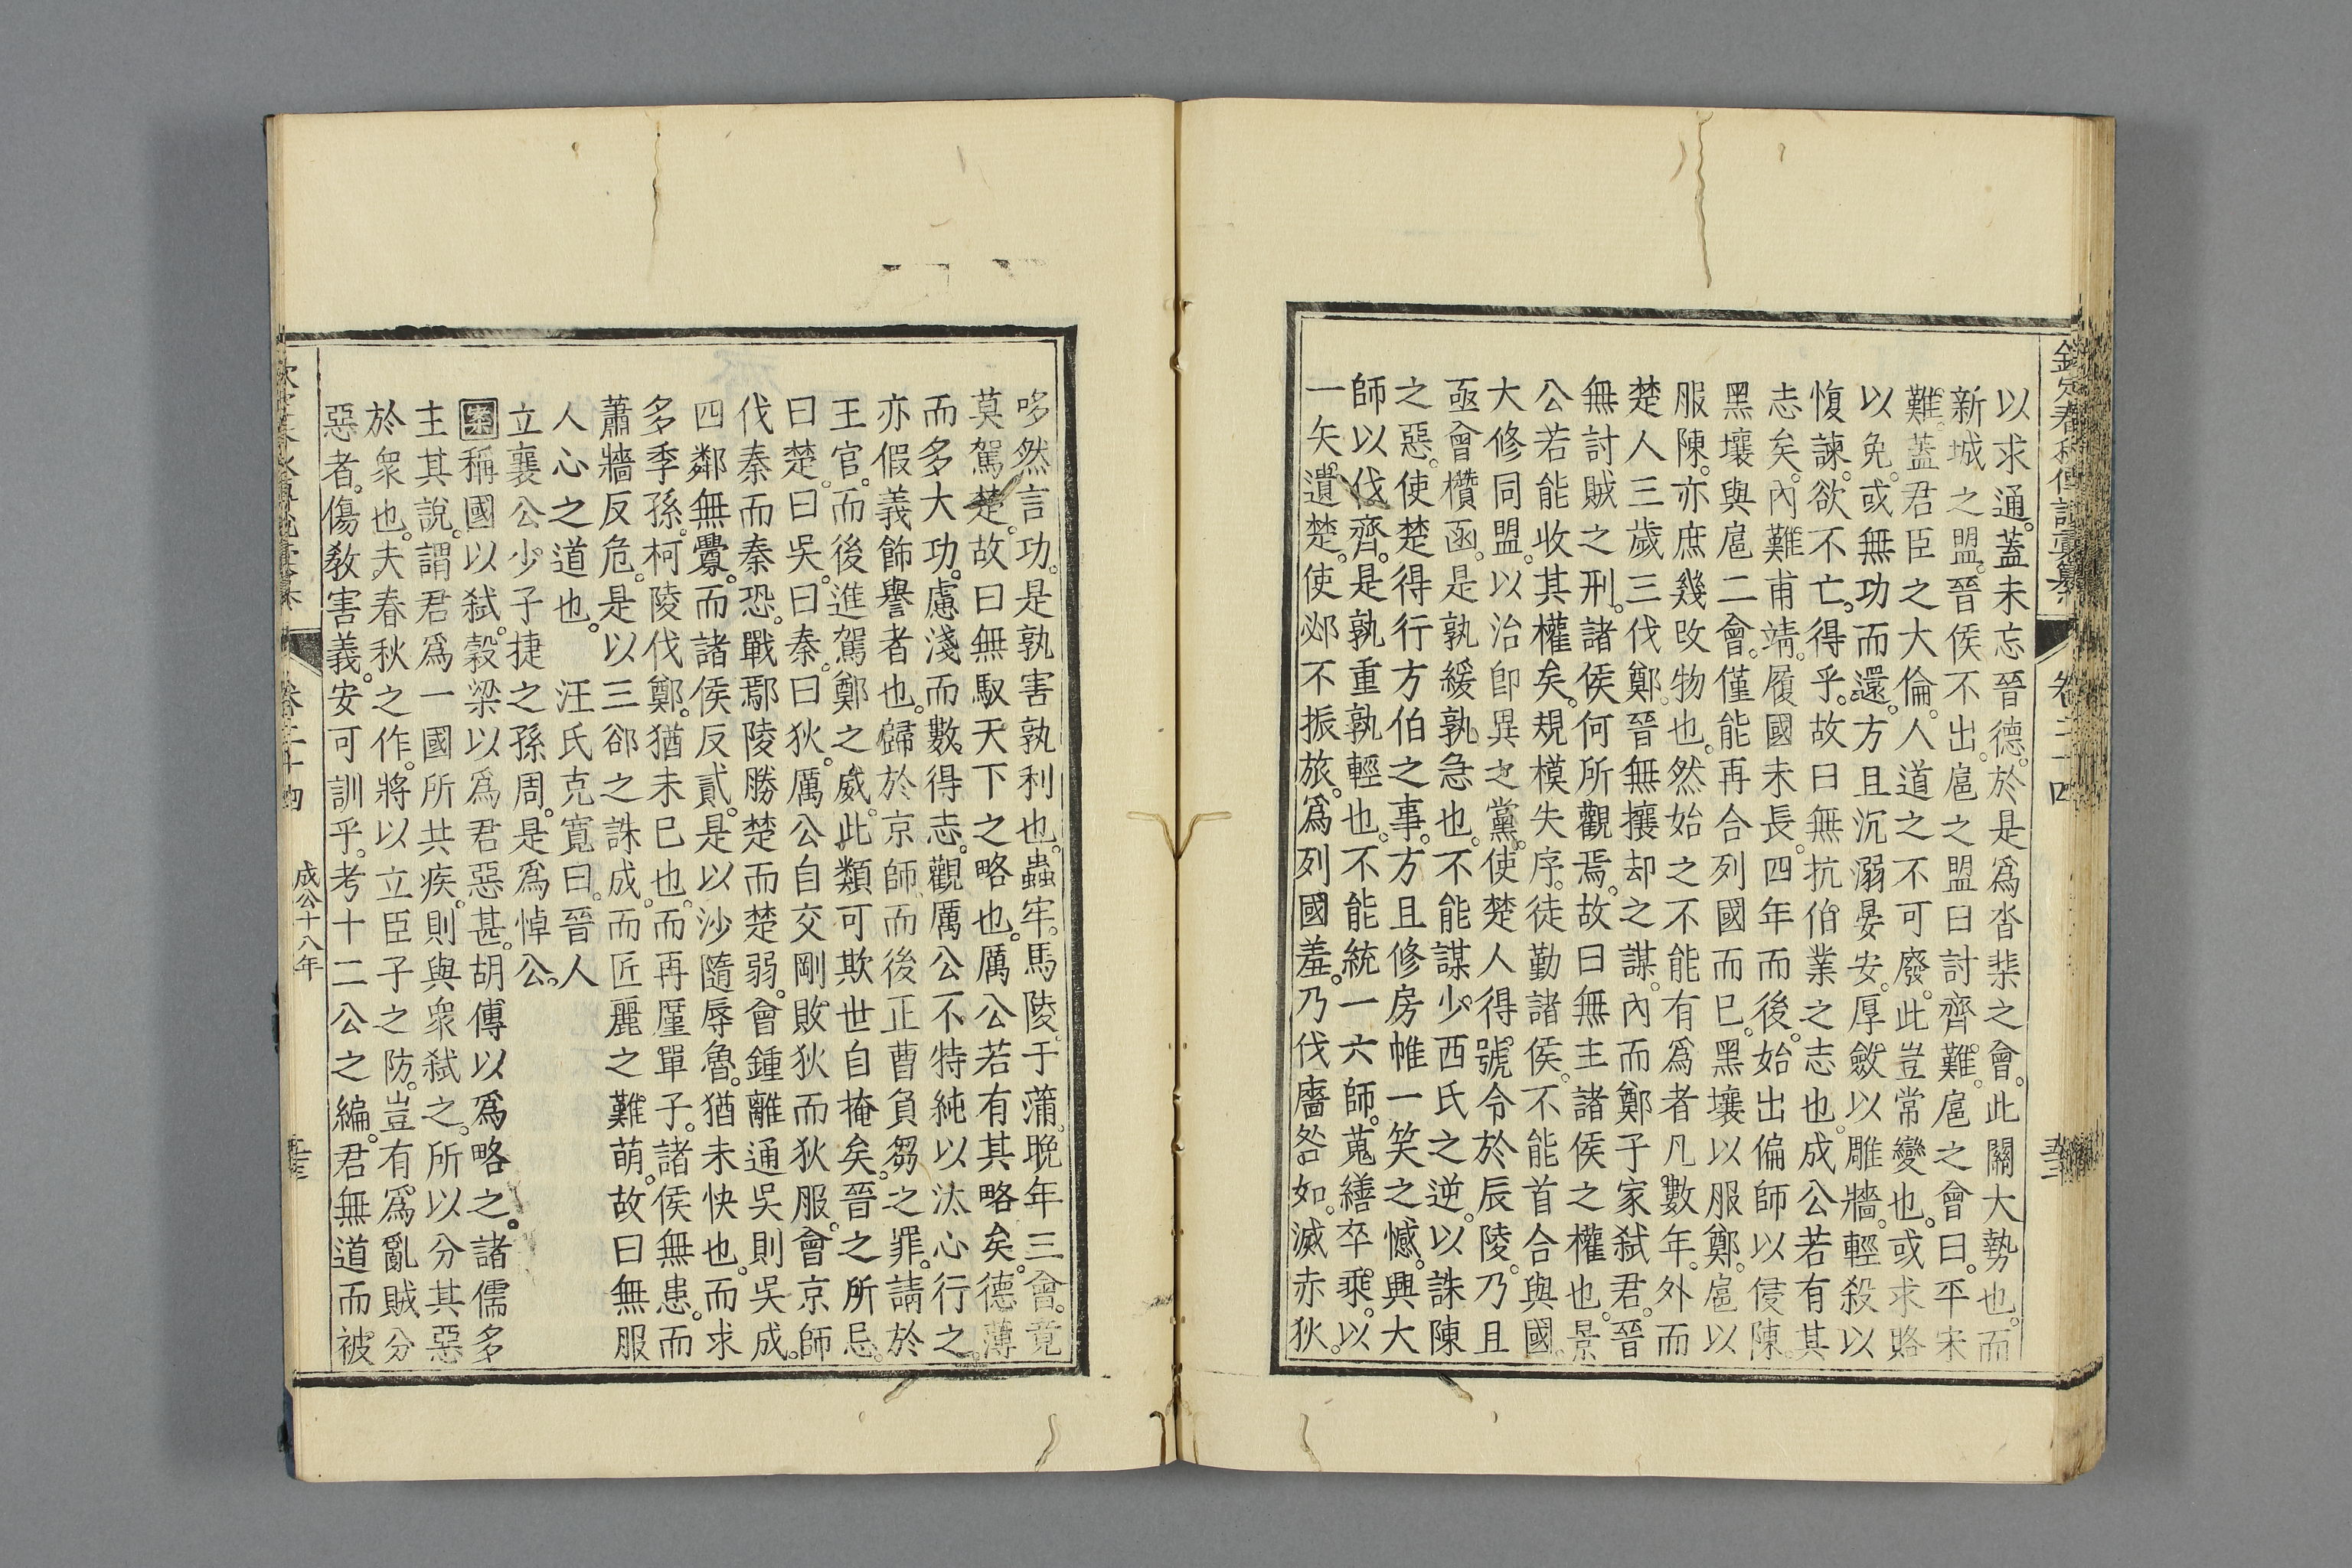 以求通。蓋未忘晉德。於是爲沓棐之會。此關大勢也。而
新城之盟。晉侯不出。扈之盟曰討齊難。扈之會曰。平宋
難。蓋君臣之大倫。人道之不可廢。此豈常變也。或求賂
以免。或無功而還。方且沉溺晏安。厚斂以雕牆。輕殺以
愎諫。欲不亡。得乎。故曰無抗伯業之志也。成公若有其
志矣。內難甫靖。履國未長。四年而後。始出偏師以侵陳。
黑壤與扈二會。僅能再合列國而已。黑壤以服鄭。扈以
服陳。亦庶幾改物也。然始之不能有爲者凡數年。外而
楚人三歲三伐鄭。晉無攘却之謀。內而鄭子家弒君。晉
無討賊之刑。諸侯何所觀焉。故曰無主諸侯之權也。景
公若能收其權矣。規模失序。徒勤諸侯。不能首合與國。
大修同盟。以治卽異之黨。使楚人得號令於辰陵。乃且
亟會欑函。是孰緩孰急也。不能謀少西氏之逆。以誅陳
之惡。使楚得行方伯之事。方且修房帷一笑之憾。興大
師以伐齊。是孰重孰輕也。不能統一六師。蒐繕卒乘。以
一矢遺楚。使邲不振旅。爲列國羞。乃伐廧咎如。滅赤狄。
哆然言功。是孰害孰利也。蟲牢。馬陵。于蒲。晚年三會。竟
莫駕楚。故曰無馭天下之略也。厲公若有其略矣。德薄
而多大功。慮淺而數得志。觀厲公不特純以汰心行之。
亦假義飾譽者也。歸於京師。而後正曹負芻之罪。請於
王官。而後進駕鄭之威。此類可欺世自掩矣。晉之所忌。
曰楚。曰吳。曰秦。曰狄。厲公自交剛敗狄而狄服。會京師
伐秦而秦恐。戰鄢陵勝楚而楚弱。會鍾離通吳則吳成。
四鄰無釁。而諸侯反貳。是以沙隨辱魯。猶未快也。而求
多季孫。柯陵伐鄭。猶未已也。而再厪單子。諸侯無患。而
蕭牆反危。是以三郤之誅成。而匠麗之難萌。故曰無服
人心之道也。 汪氏克寬曰。晉人
立襄公少子捷之孫周。是爲悼公。
案稱國以弒。穀梁以爲君惡甚。胡傳以爲略之。諸儒多
主其說。謂君爲一國所共疾。則與衆弒之。所以分其惡
於衆也。夫春秋之作。將以立臣子之防。豈有爲亂賊分
惡者。傷教害義。安可訓乎。考十二公之編。君無道而被
成公十八年